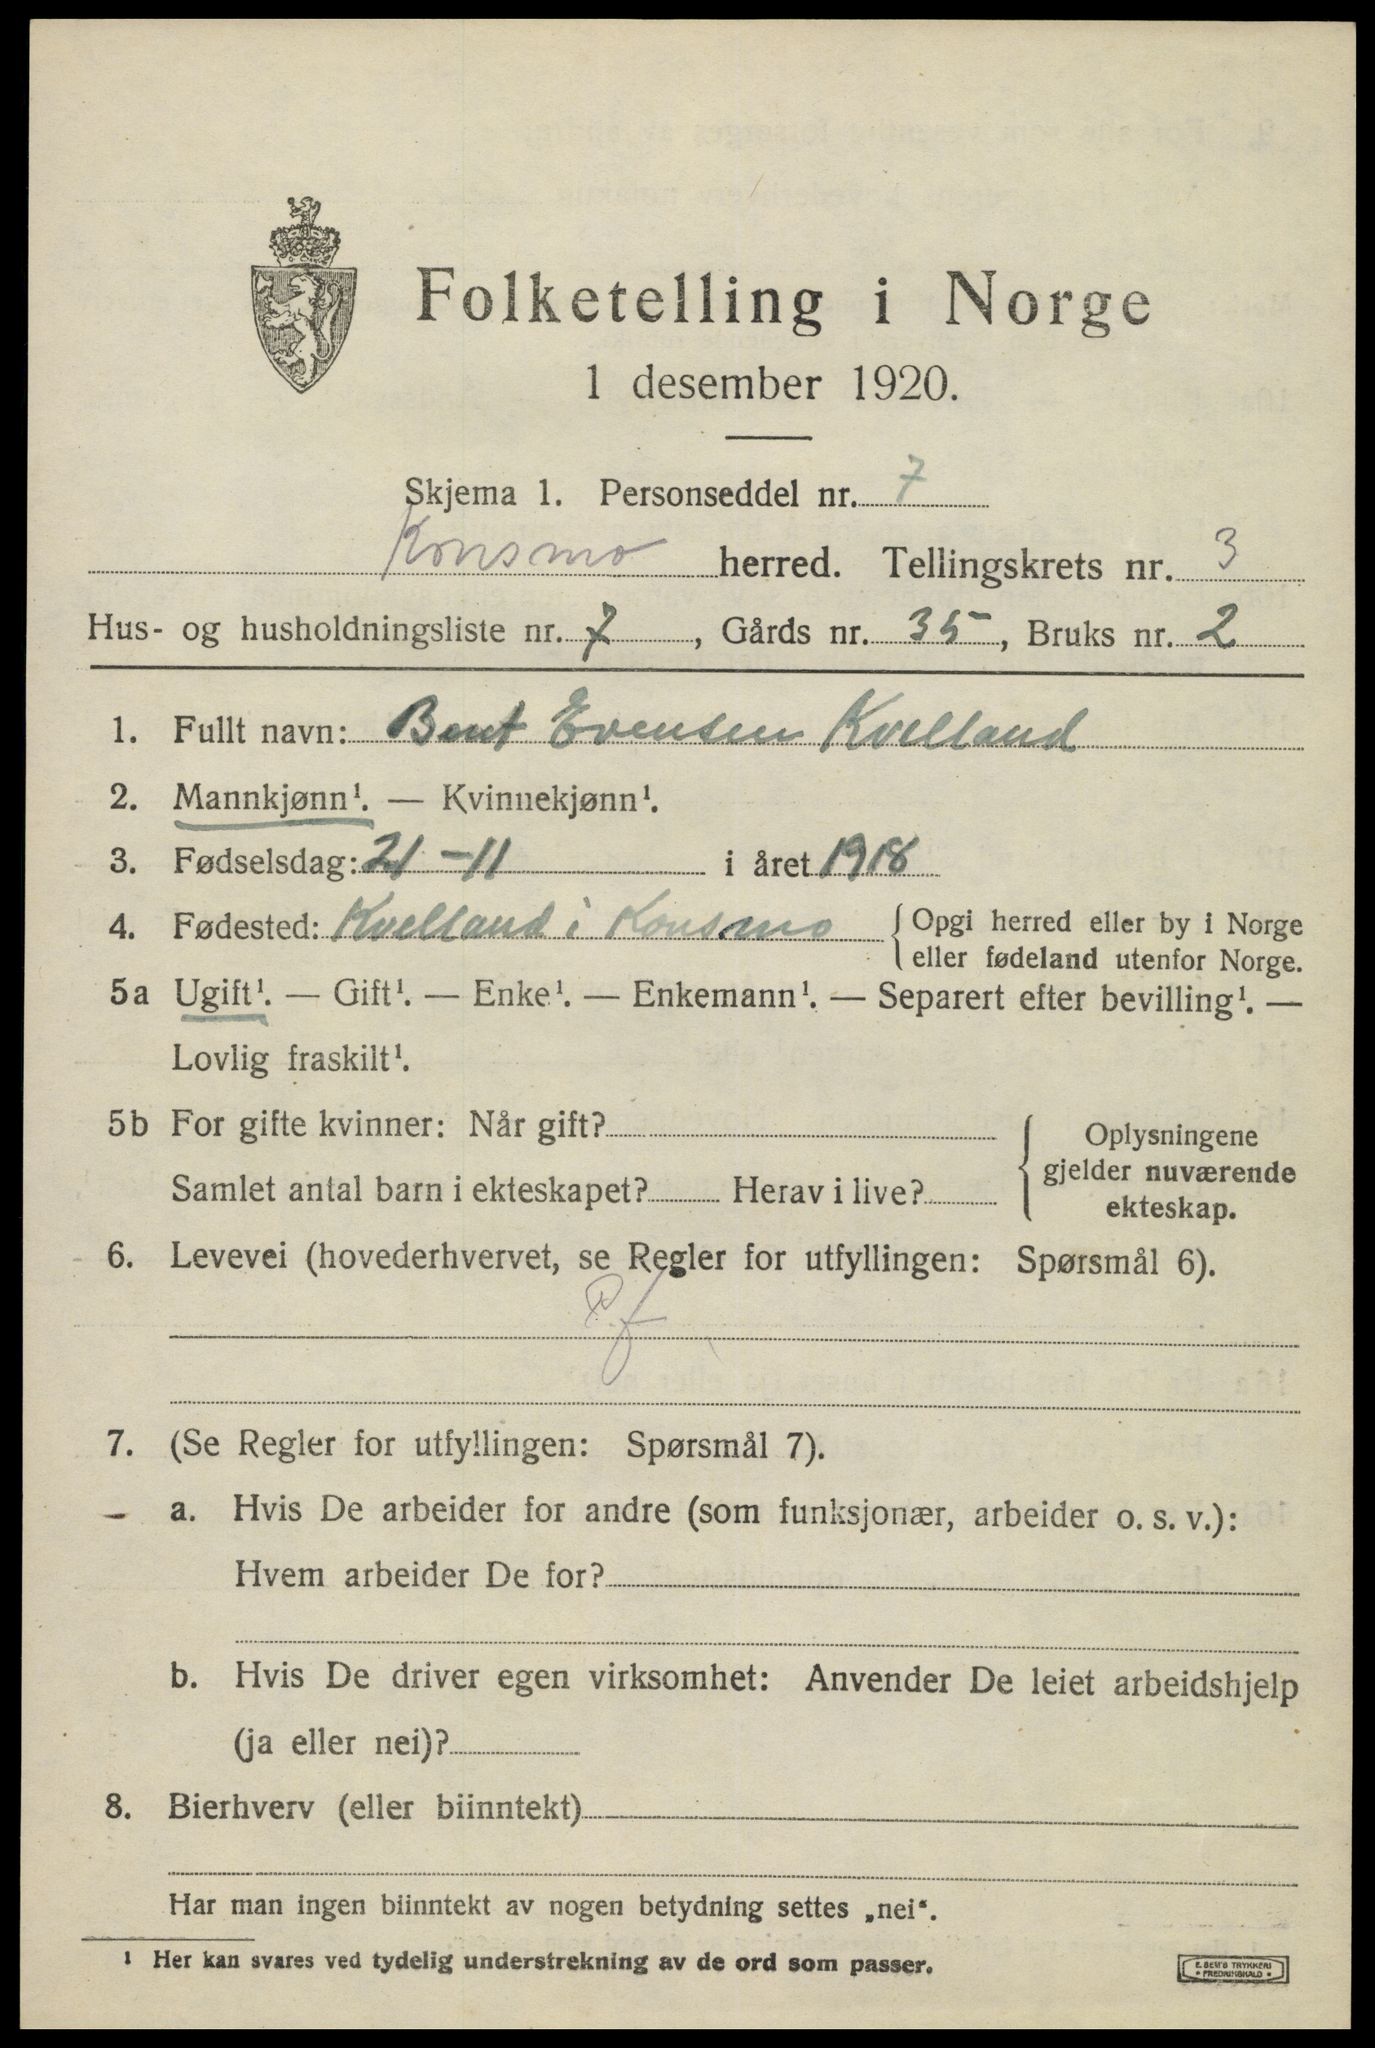 Folketelling i Norge
1 desember 1920.
Skjema 1. Personseddel nr. 7
Konsmo herred. Tellingskrets nr. 3
Hus- og husholdningsliste nr. 7, Gårds nr. 35, Bruks nr. 2
1. Fullt navn: Bent Evensen Kvelland
2. Mannkjønn¹. — Kvinnekjønn¹.
3. Fødselsdag: 21-11 i året 1918
4. Fødested: Kvelland i Konsmo { Opgi herred eller by i Norge
eller fødeland utenfor Norge.
5a Ugift¹. — Gift¹. — Enke¹. — Enkemann¹. — Separert efter bevilling¹. —
Lovlig fraskilt¹.
5b For gifte kvinner: Når gift?
Samlet antal barn i ekteskapet? Herav i live?
{ Oplysningene
gjelder nuværende
ekteskap.
6. Levevei (hovederhvervet, se Regler for utfyllingen: Spørsmål 6).
P.f
7. (Se Regler for utfyllingen: Spørsmål 7).
a. Hvis De arbeider for andre (som funksjonær, arbeider o. s. v.):
Hvem arbeider De for?
b. Hvis De driver egen virksomhet: Anvender De leiet arbeidshjelp
(ja eller nei)?
8. Bierhverv (eller biinntekt)
Har man ingen biinntekt av nogen betydning settes „nei“.
¹ Her kan svares ved tydelig understrekning av de ord som passer.
E. SEM'S TRYKKERI
• FREDRIKSHALD •